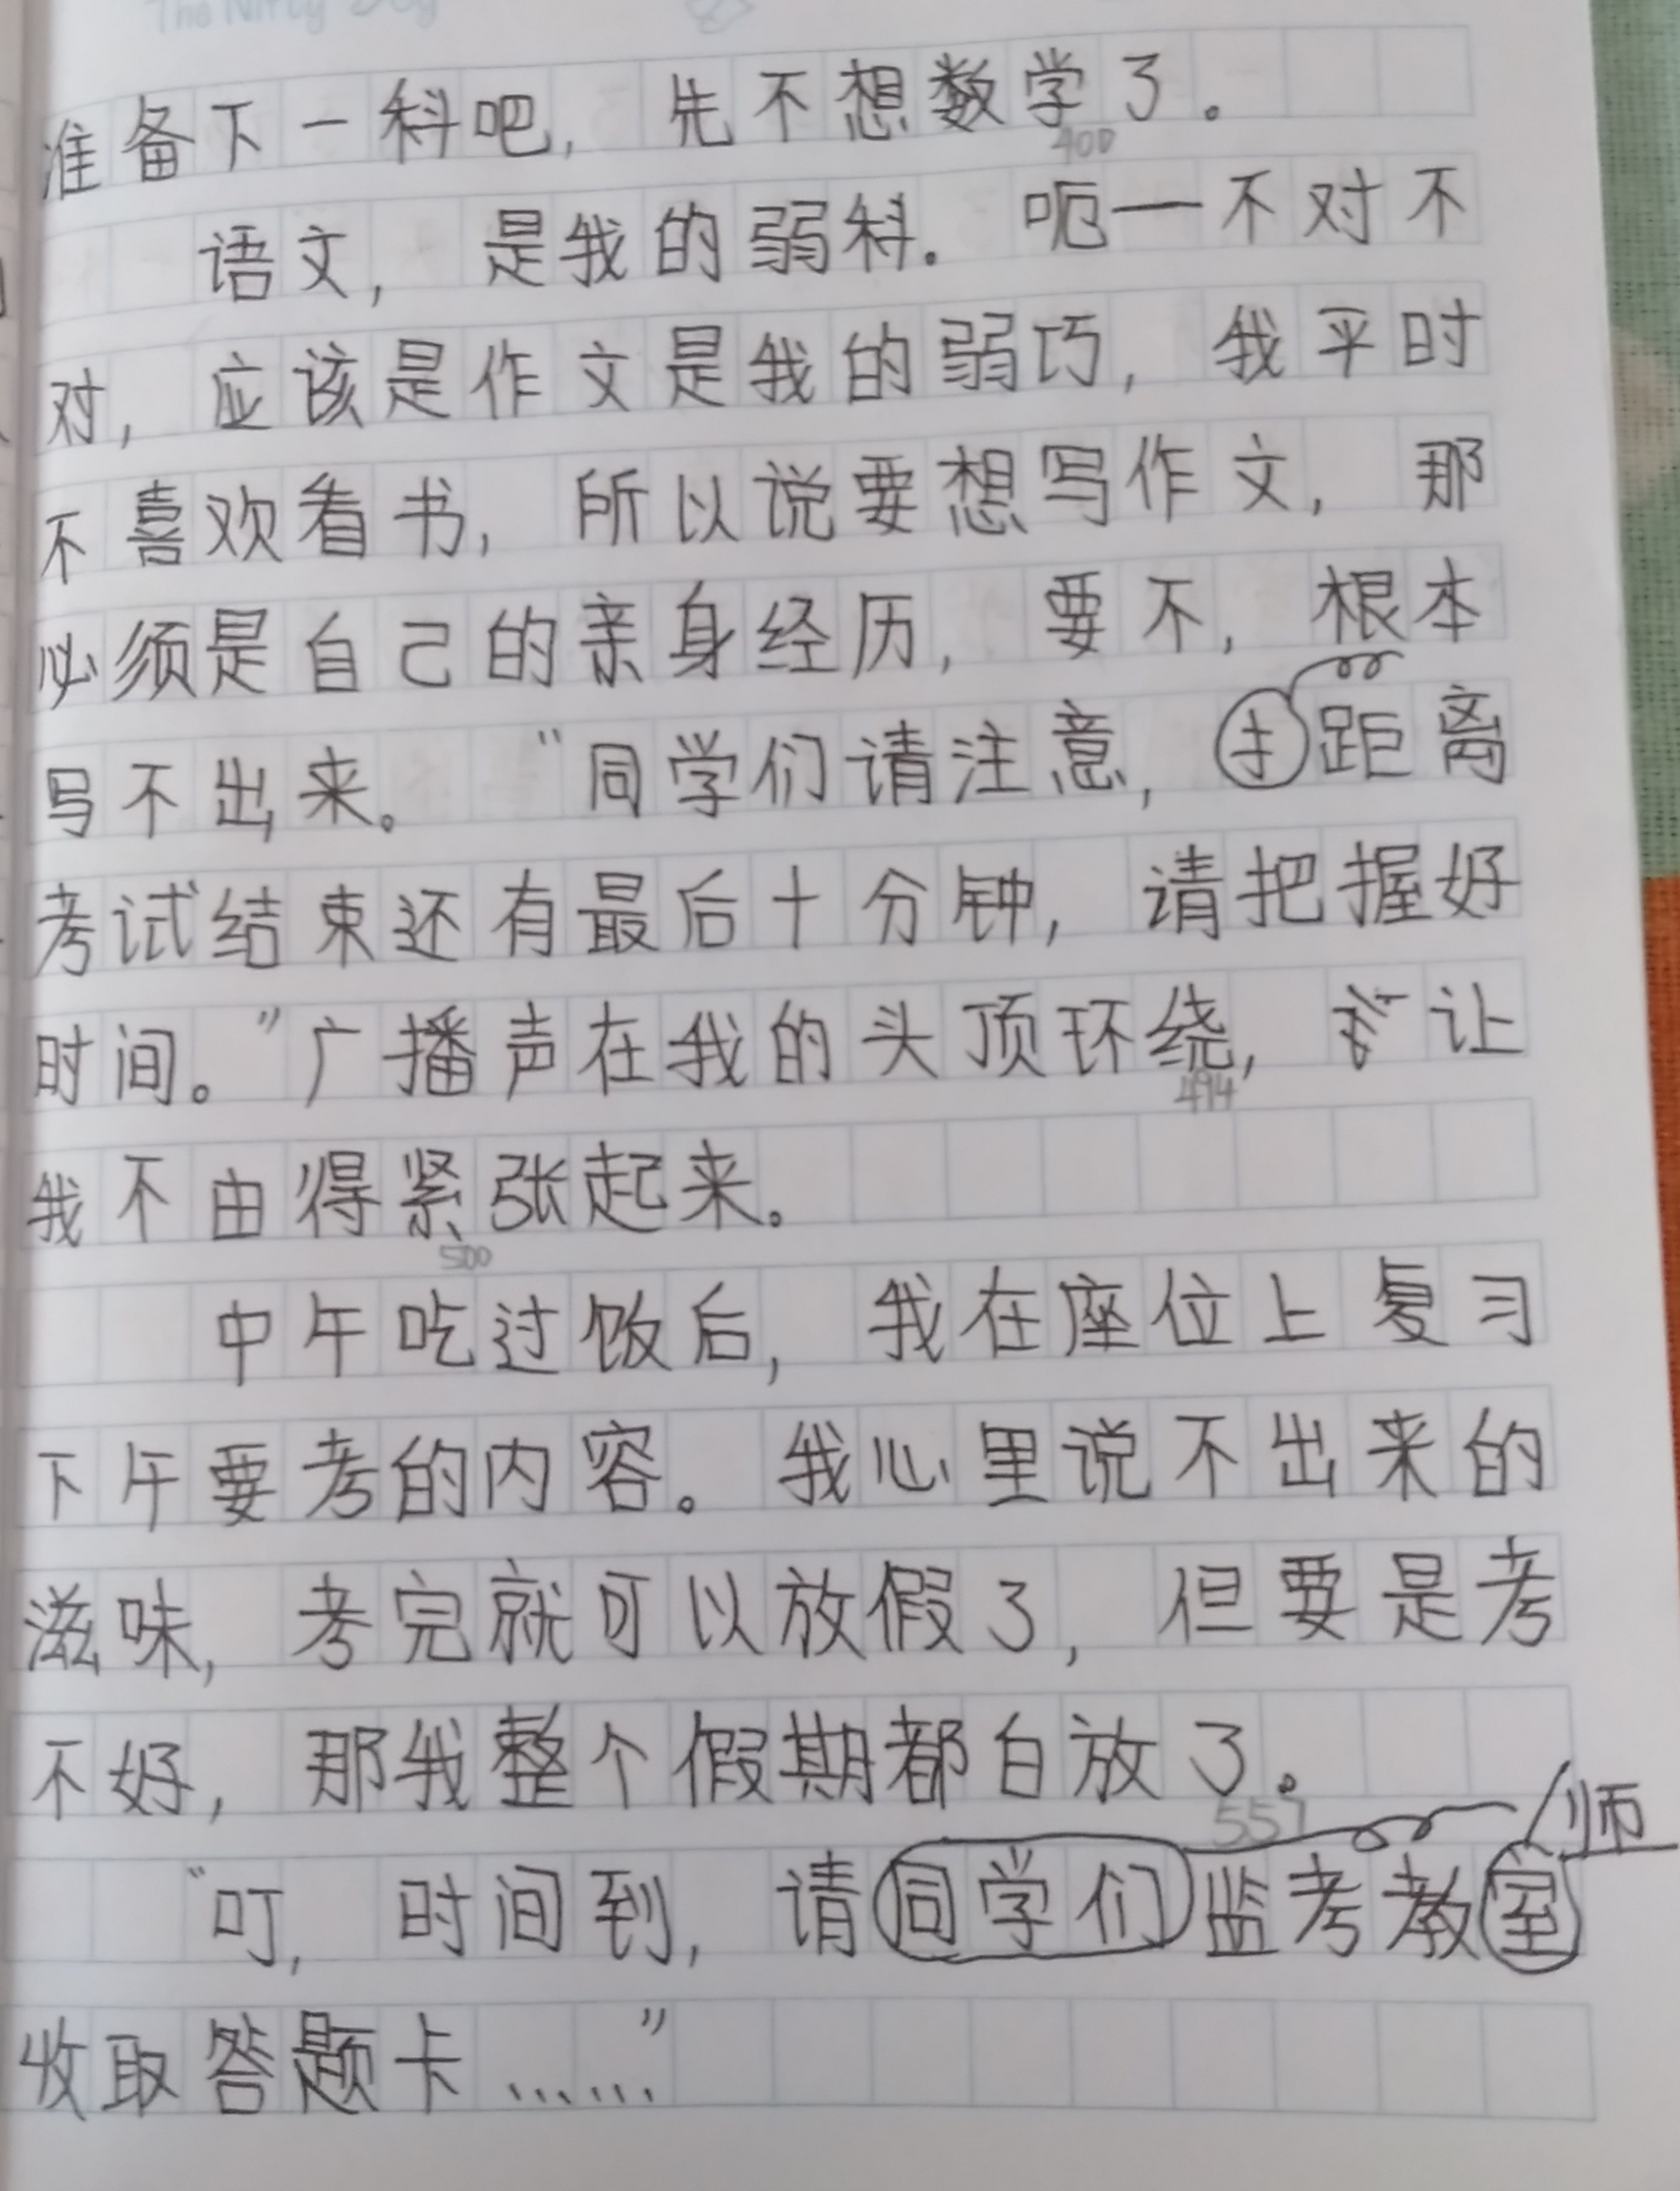 The Nifty Dog
准备下一科吧，先不想数学了。
400
语文，是我的弱科。呃一不对不
对，应该是作文是我的弱巧，我平时
不喜欢看书，所以说要想写作文，那
必须是自己的亲身经历，要不，根本
写不出来。"同学们请注意，距离
考试结束还有最后十分钟，请把握好
时间。"广播声在我的头顶环绕，让
494
我不由得紧张起来。
500
中午吃过饭后，我在座位上复习
下午要考的内容。我心里说不出来的
滋味，考完就可以放假了，但要是考
不好，那我整个假期都白放了。
557
师
"叮，时间到，请同学们监考教室
收取答题卡……"